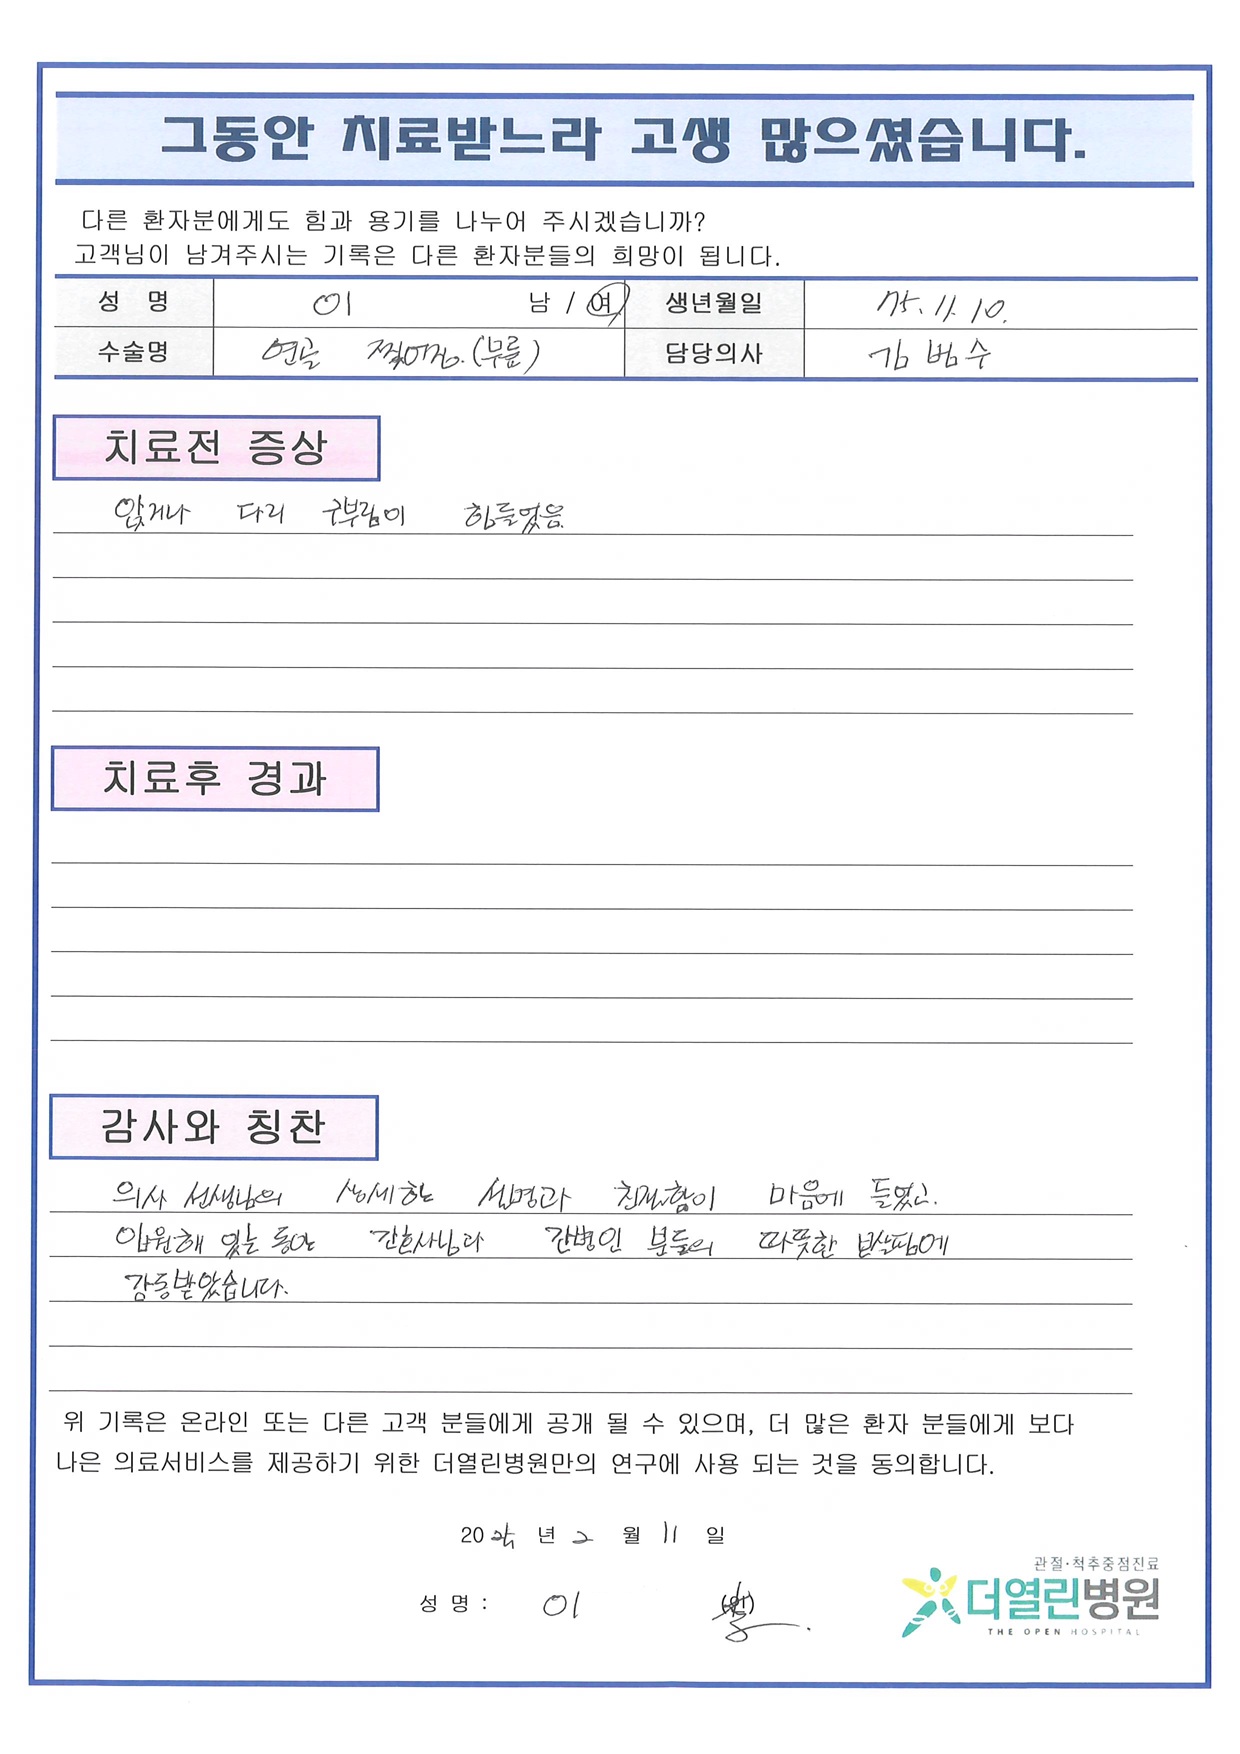 그동안 치료받느라 고생 많으셨습니다.
다른 환자분에게도 힘과 용기를 나누어 주시겠습니까?
고객님이 남겨주시는 기록은 다른 환자분들의 희망이 됩니다.
성 명 이 남 / 여 생년월일 75.11.10.
수술명 연골 찢어짐.(무릎) 담당의사 김범수
치료전 증상
앉거나 다리 구부림이 힘들었음
치료후 경과
감사와 칭찬
의사 선생님의 상세한 설명과 친절함이 마음에 들었고.
입원해 있는 동안 간호사님과 간병인 분들의 따뜻한 보살핌에
감동받았습니다.
위 기록은 온라인 또는 다른 고객 분들에게 공개 될 수 있으며, 더 많은 환자 분들에게 보다
나은 의료서비스를 제공하기 위한 더열린병원만의 연구에 사용 되는 것을 동의합니다.
20 년 2 월 11 일
성 명 : 이 (인)
관절·척추중점진료
더열린병원
THE OPEN HOSPITAL